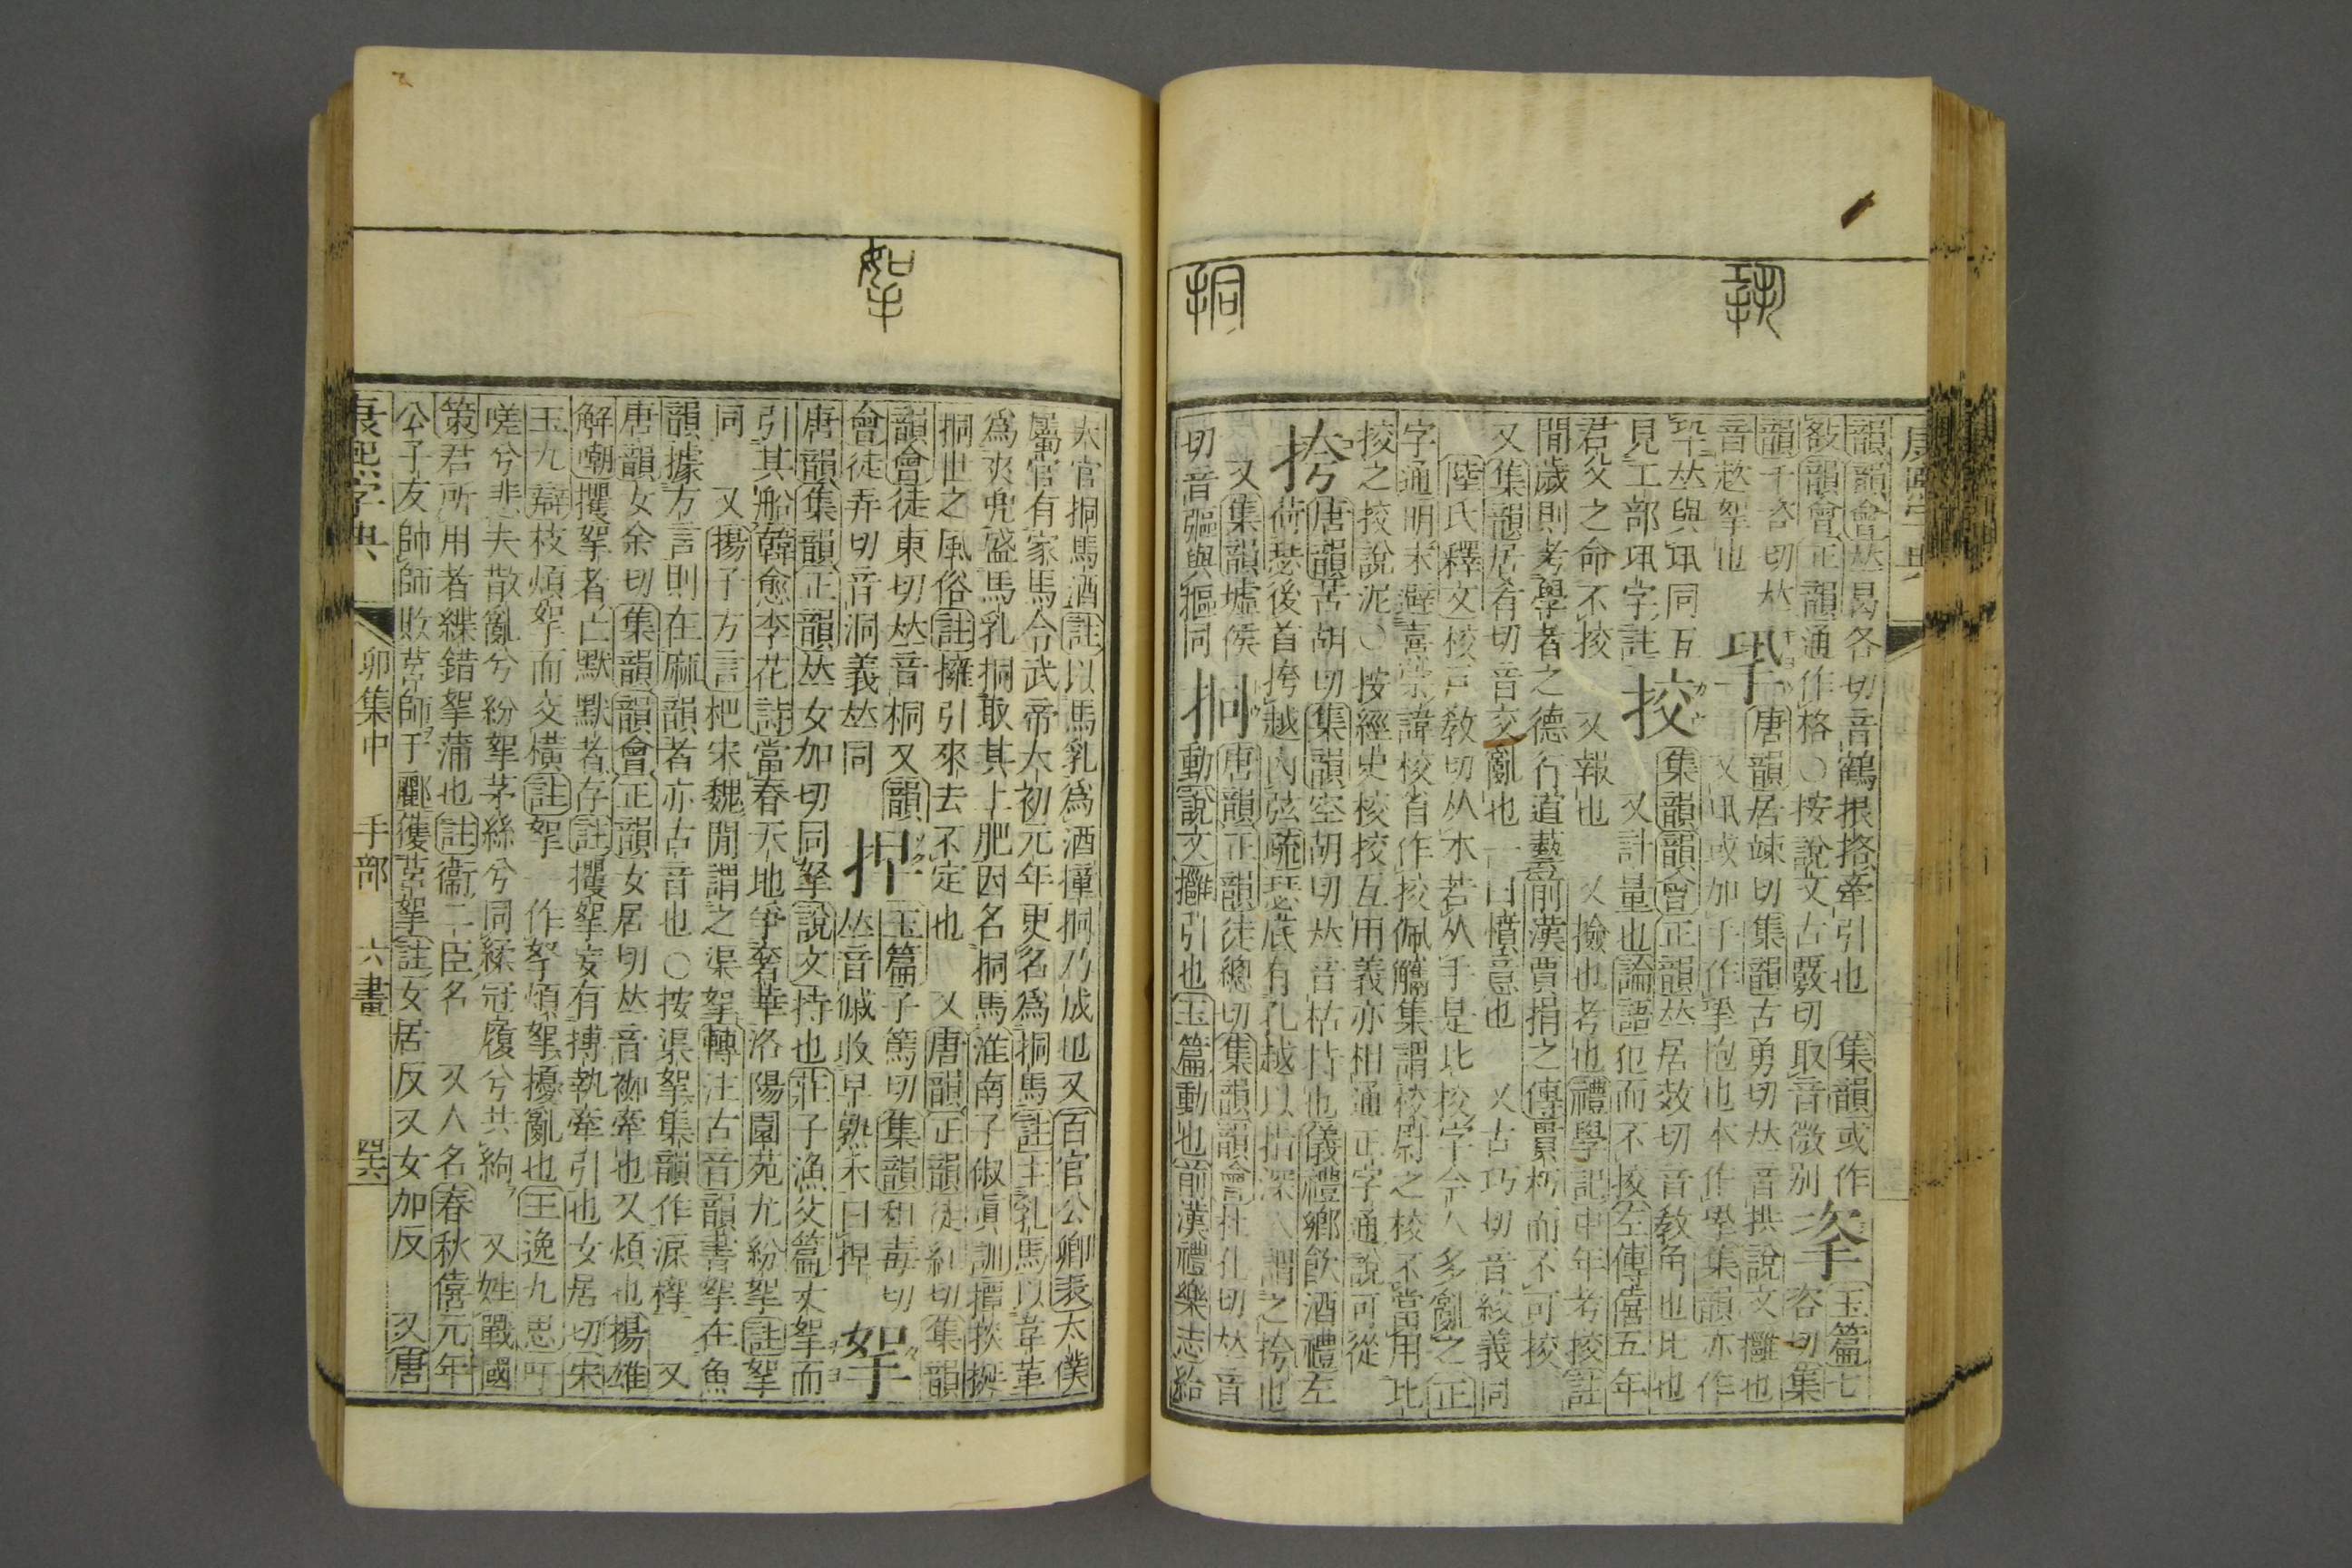 韻韻會𠀤曷各切音鶴挋挌牽引也 集韻或作
㪇韻會正韻通作格○按說文古覈切取音微别 𢫶 玉篇七
韻千咨切𠀤 咨切集
音趑拏也 㧬 唐韻居竦切集韻古勇切𠀤音拱說文攤也
又㧬或加手作挐抱也本作𢀜集韻亦作
𢀜𠀤與㧬同互
見工部㧬字註 挍 集韻韻會正韻𠀤居效切音敎角也比也
又計量也論語犯而不挍左傳僖五年
君父之命不挍 又報也 又檢也考也禮學記中年考挍註
閒歲則考學者之德行道藝前漢賈捐之傳貫朽而不可挍
又集韻居肴切音交亂也一曰憤意也 又古巧切音絞義同
陸氏釋文挍古敎切从木若从手是比校字今人多亂之正
字通明末避熹宗諱校省作挍佩觿集謂校尉之校不當用比
挍之挍說泥○按經史校挍互用義亦相通正字通說可從
挎 唐韻苦胡切集韻空胡切𠀤音枯持也儀禮鄕飮酒禮左
荷瑟後首挎越內弦疏瑟底有孔越以指深入謂之挎也
又集韻墟侯
切音彄與摳同 挏 唐韻正韻徒總切集韻韻會杜孔切𠀤音
動說文攤引也玉篇動也前漢禮樂志給
大官挏馬酒註以馬乳爲酒撞挏乃成也又百官公卿表太僕
屬官有家馬令武帝太初元年更名爲挏馬註主乳馬以韋革
爲夾兜盛馬乳挏取其上肥因名挏馬淮南子俶眞訓撢掞挺
挏世之風俗註擁引來去不定也 又唐韻正韻徒紅切集韻
韻會徒東切𠀤音桐又韻
會徒弄切音洞義𠀤同 捏 玉篇子篤切集韻租毒切
𠀤音傶收早熟禾曰捏 挐
唐韻集韻正韻𠀤女加切同拏說文持也莊子漁父篇丈挐而
引其船韓愈李花詩當春天地爭奢華洛陽園苑尤紛挐註挐
同 又揚子方言杷宋魏閒謂之渠挐轉注古音韻書挐在魚
韻據方言則在麻韻者亦古音也○按渠挐集韻作淭㭨 又
唐韻女余切集韻韻會正韻女居切𠀤音袽牽也又煩也揚雄
解嘲攫挐者亡默默者存註攫挐妄有搏執牽引也女居切宋
玉九辯枝煩挐而交橫註挐一作拏煩挐擾亂也王逸九思吁
嗟兮悲夫散亂兮紛挐茅絲兮同綜冠履兮共絇 又姓戰國
策君所用者緤錯挐蒲也註衞二臣名 又人名春秋僖元年
公子友帥師敗莒師于酈獲莒挐註女居反又女加反 又唐
康熙字典 卯集中 手部 六畫